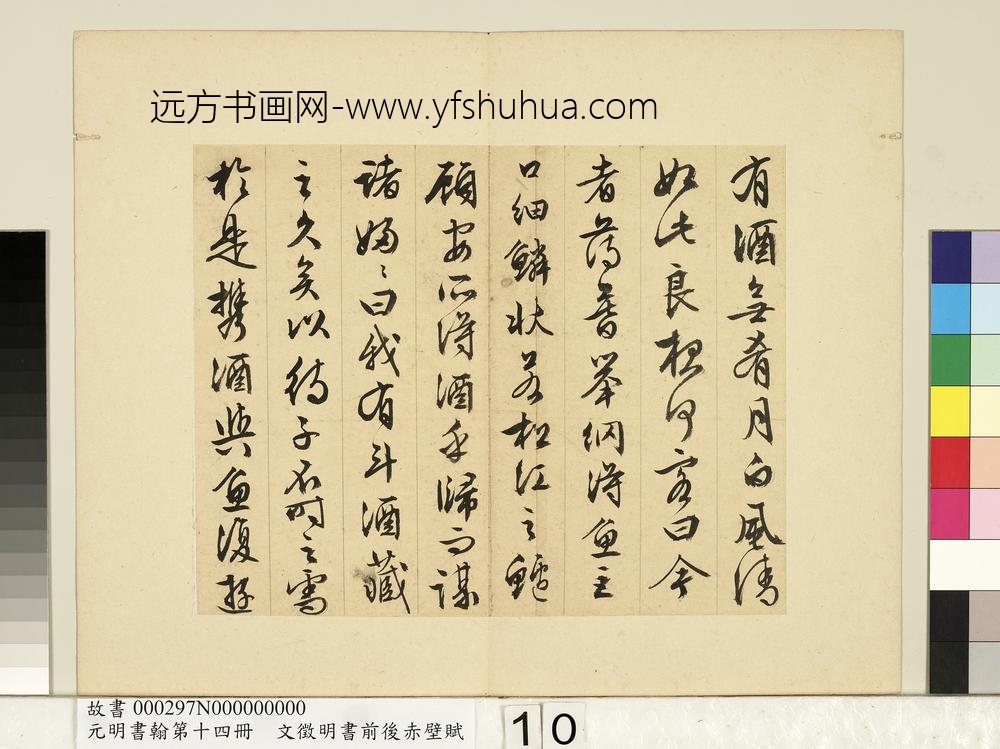 远方书画网-www.yfshuhua.com
有酒無肴月白風清
如此良夜何客曰今
者薄暮舉網得魚巨
口細鱗狀若松江之鱸
顧安所得酒乎歸而謀
諸婦〻曰我有斗酒藏
之久矣以待子不時之需
於是攜酒與魚復遊
故書 000297N000000000
元明書翰第十四冊 文徵明書前後赤壁賦
10